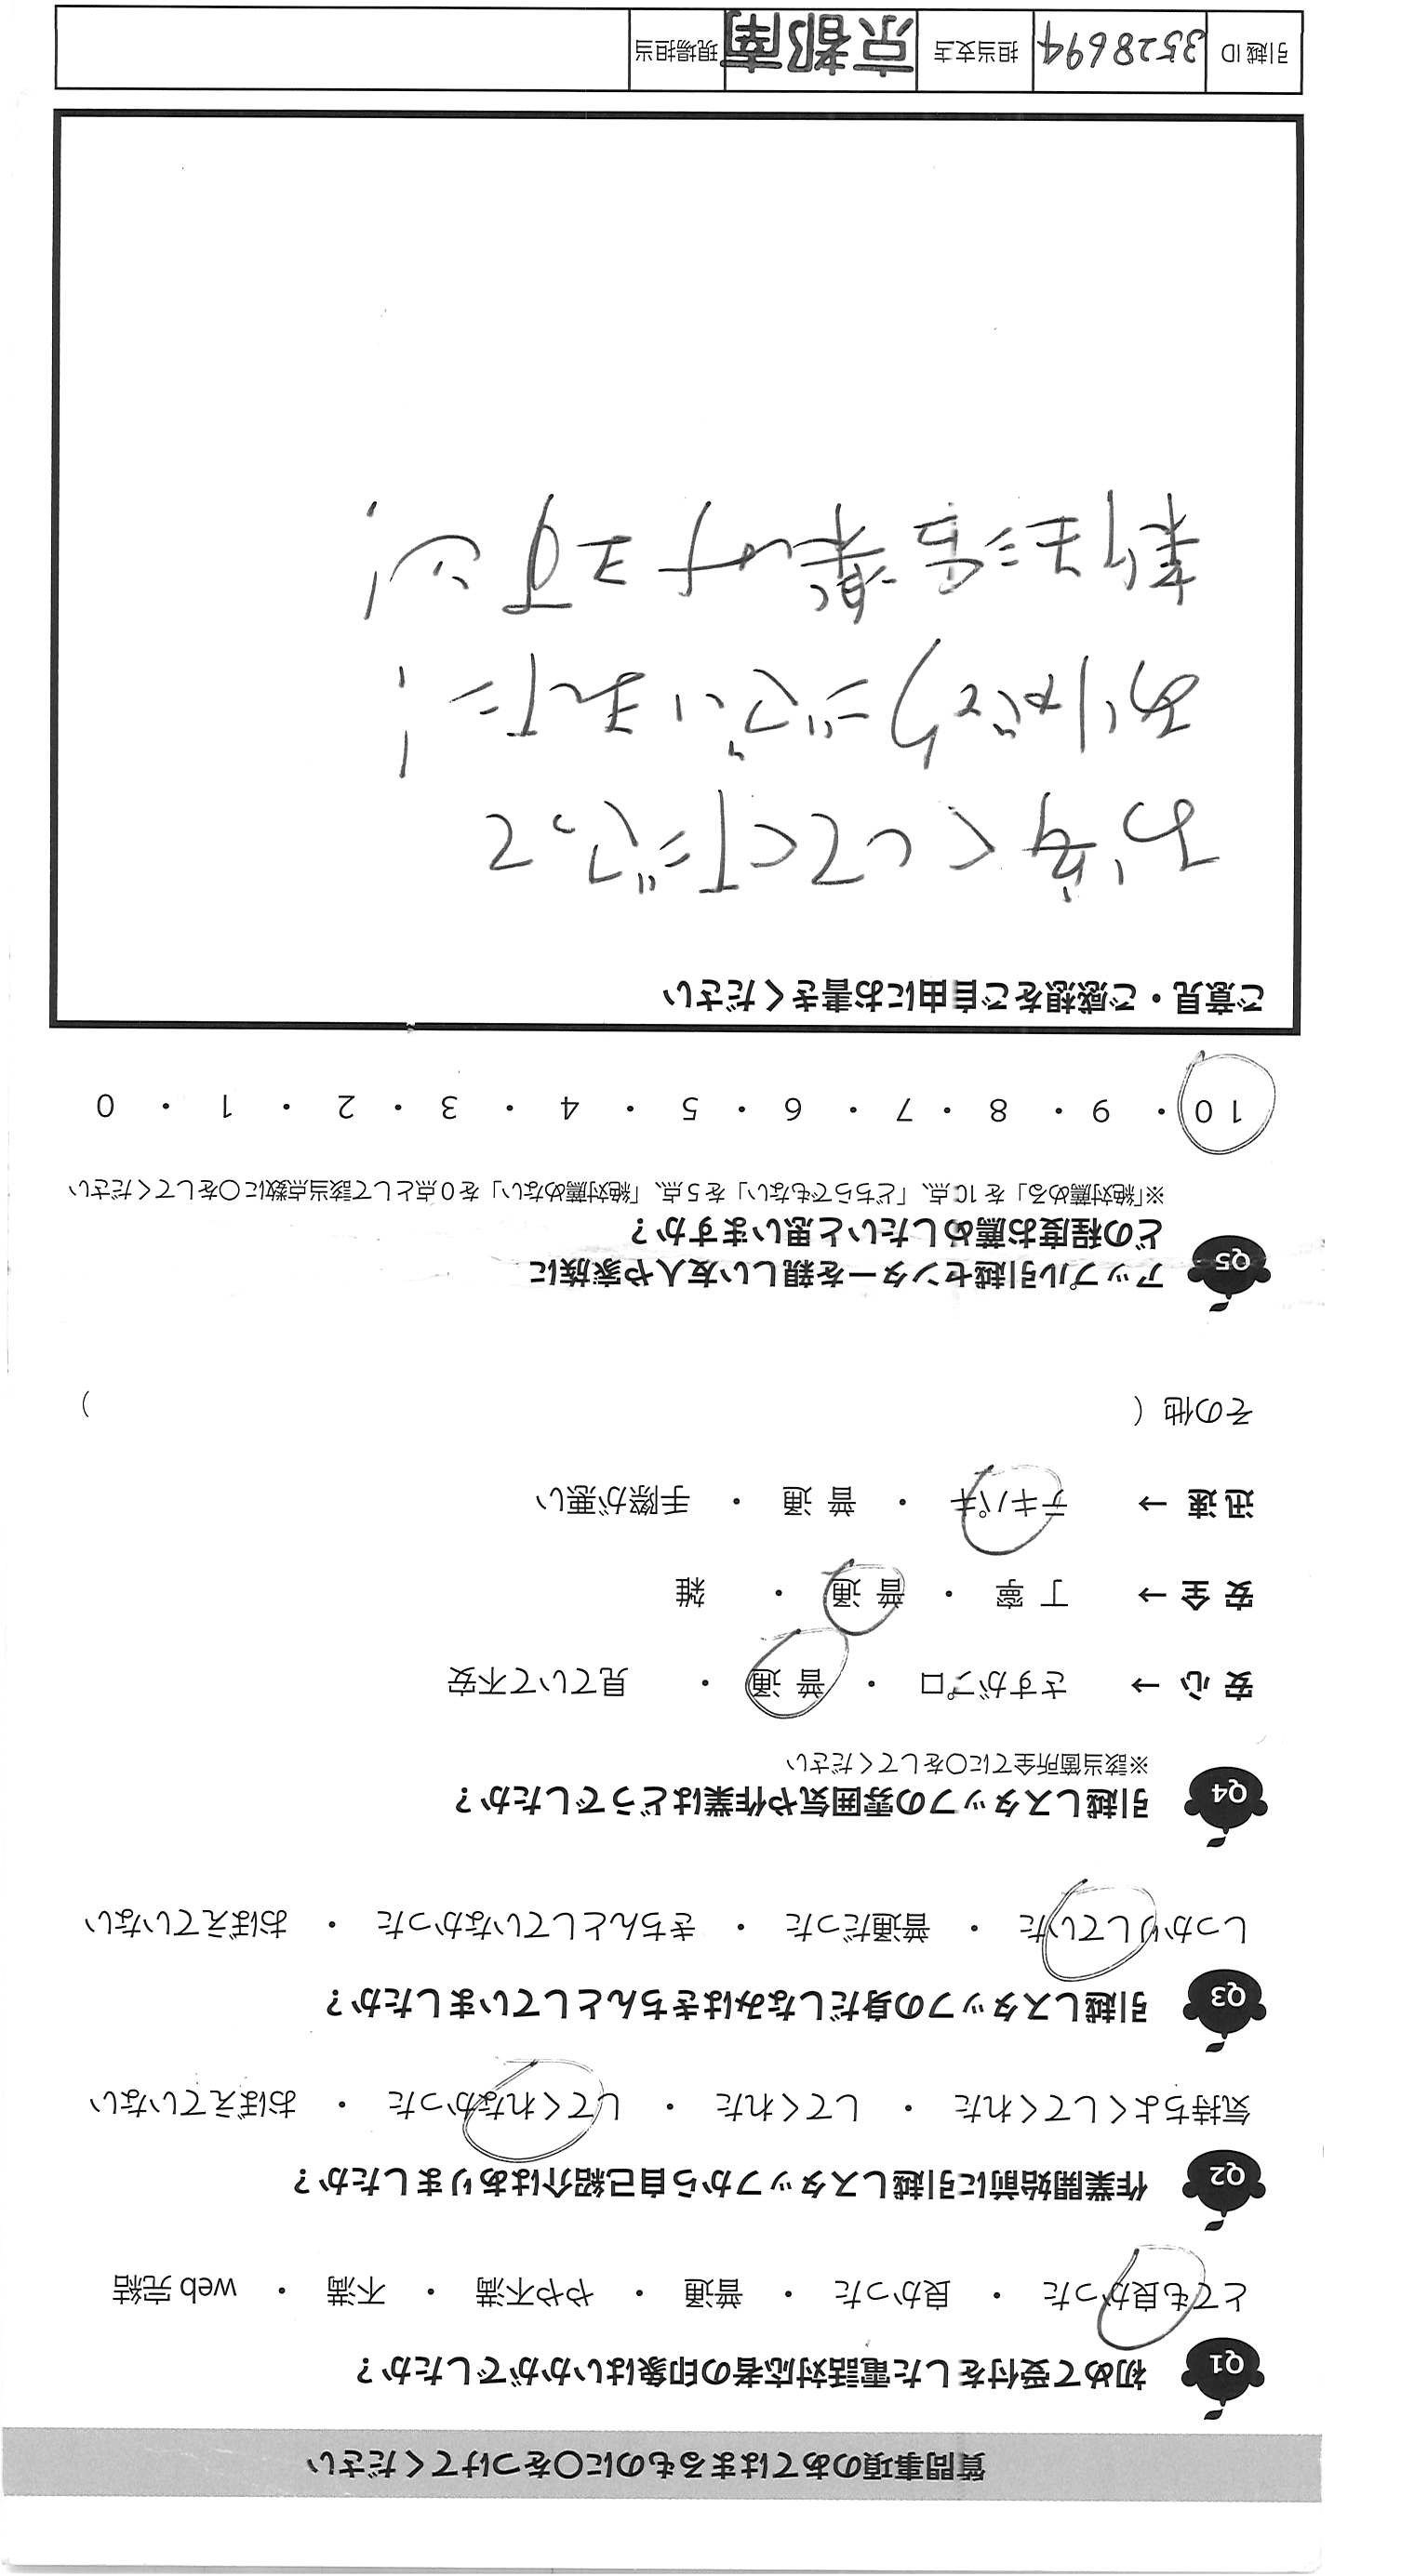 質問事項のあてはまるものに〇をつけてください
Q1 初めて受付をした電話対応者の印象はいかがでしたか？
とても良かった ・ 良かった ・ 普通 ・ やや不満 ・ 不満 ・ web完結
Q2 作業開始前に引越しスタッフから自己紹介はありましたか？
気持ちよくしてくれた ・ してくれた ・ してくれなかった ・ おぼえていない
Q3 引越しスタッフの身だしなみはきちんとしていましたか？
しっかりしていた ・ 普通だった ・ きちんとしていなかった ・ おぼえていない
Q4 引越しスタッフの雰囲気や作業はどうでしたか？
※該当箇所全てに〇をしてください
安心 → さすがプロ ・ 普通 ・ 見ていて不安
安全 → 丁寧 ・ 普通 ・ 雑
迅速 → テキパキ ・ 普通 ・ 手際が悪い
その他（ ）
Q5 アップル引越センターを親しい友人や家族に
どの程度お薦めしたいと思いますか？
※「絶対薦める」を10点、「どちらでもない」を5点、「絶対薦めない」を0点として該当点数に〇をしてください
10 ・ 9 ・ 8 ・ 7 ・ 6 ・ 5 ・ 4 ・ 3 ・ 2 ・ 1 ・ 0
ご意見・ご感想をご自由にお書きください
お安くしてくださって
ありがとうございました！
新生活楽しみます!
引越ID 3528694 担当支店 京都南 現場担当